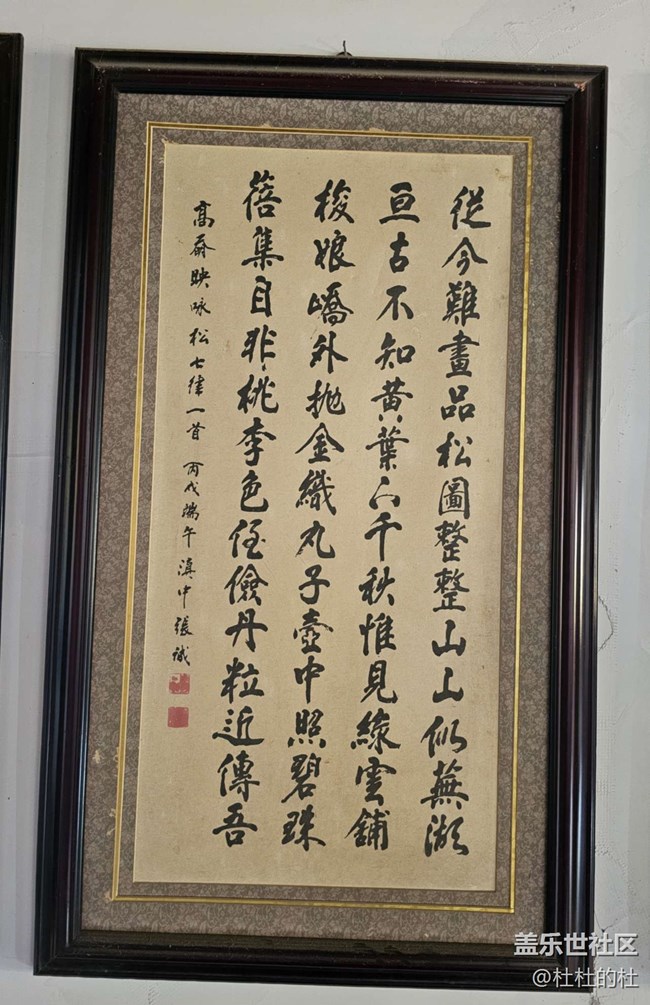 從今難畫品松圖整整山上似蕪湖
亘古不知黃葉下千秋惟見綠雲鋪
梭娘嶠外拋金織丸子壺中照碧珠
蓓集自非桃李色任儉丹粒近傳吾
高奣映咏松七律一首 丙戌端午 滇中 張誠
盖乐世社区
@杜杜的杜